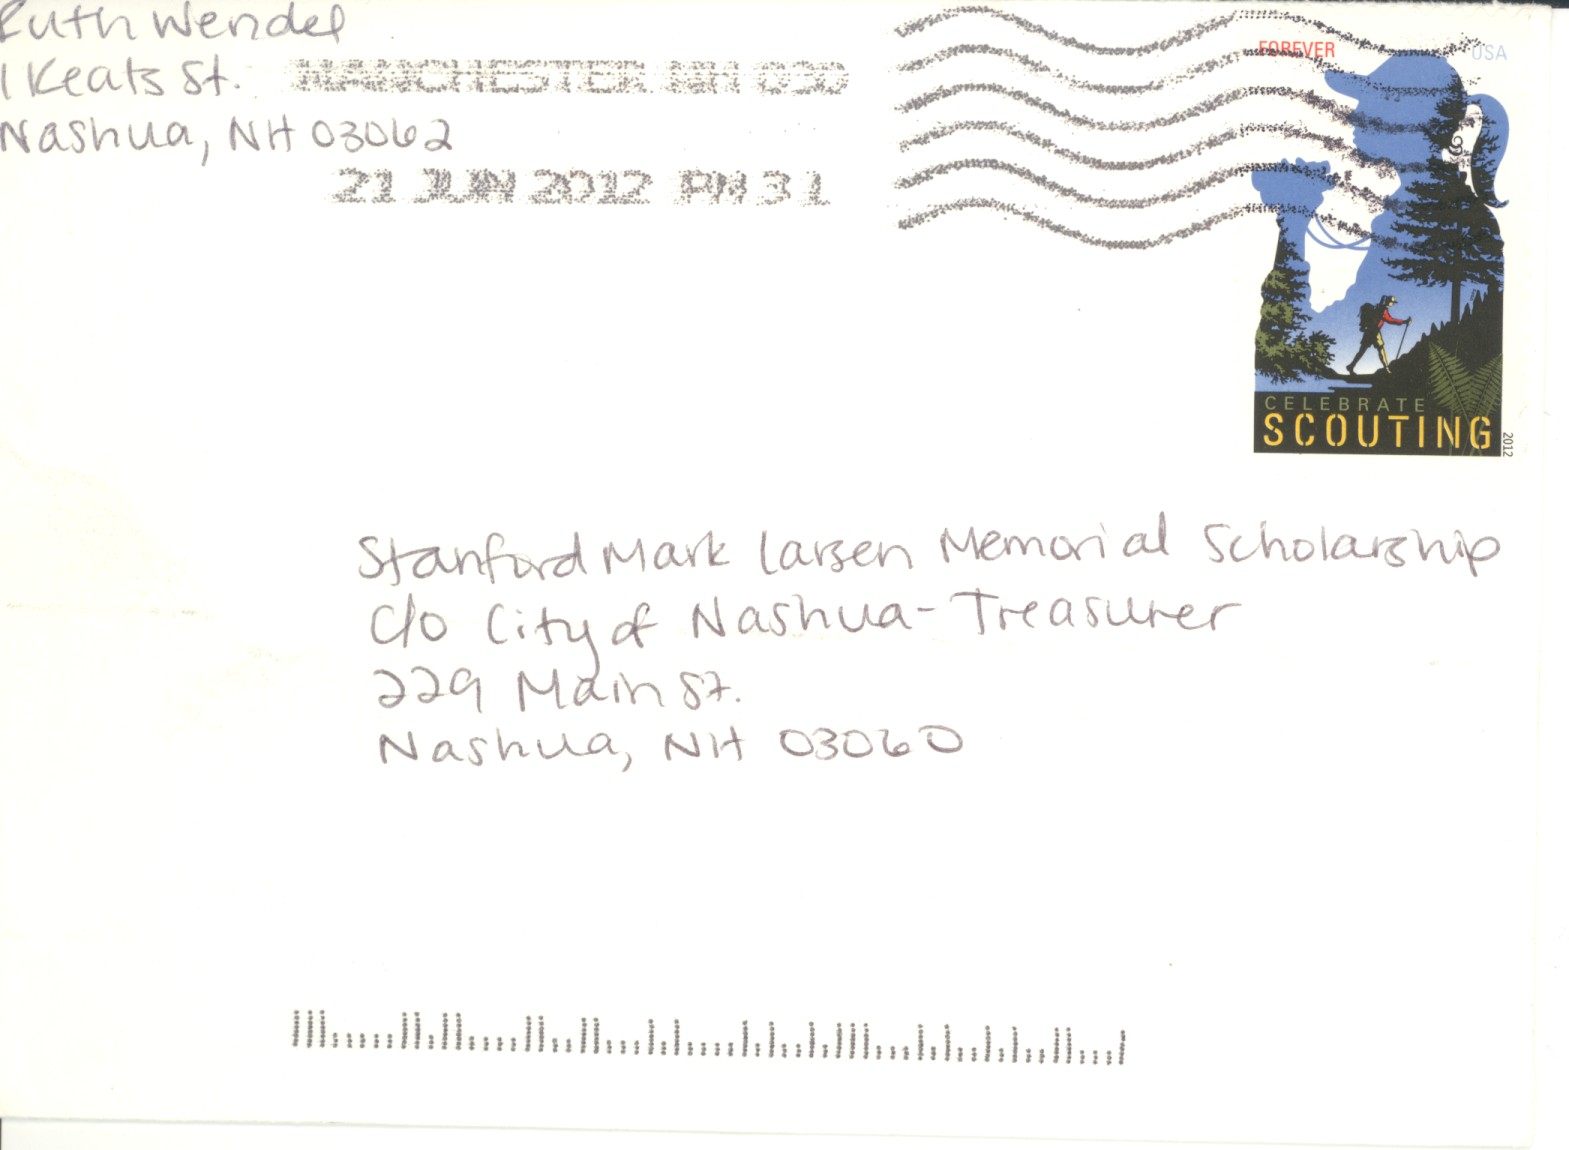 Ruth Wendel
1 Keats St.
Nashua, NH 03062
MANCHESTER NH 030
21 JUN 2012 PM 3 L
FOREVER
USA
CELEBRATE
SCOUTING
2012
Stanford Mark Larsen Memorial Scholarship
c/o City of Nashua - Treasurer
229 Main St.
Nashua, NH 03060